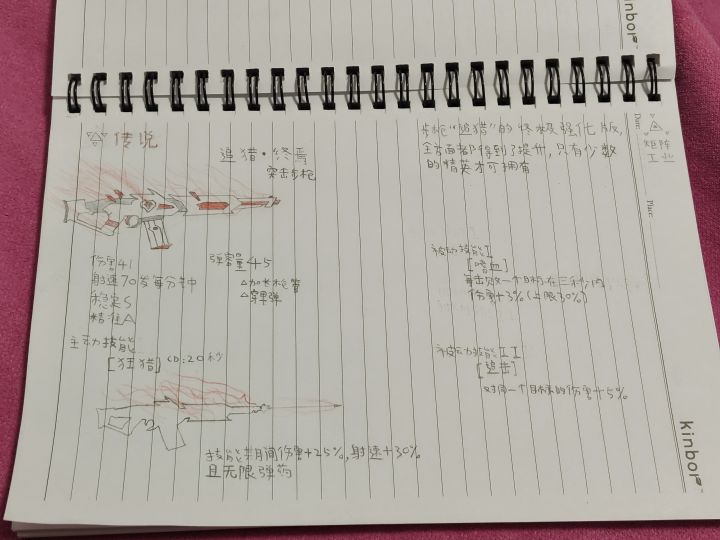 kinbor
Date:
Place:
矩阵
工业
传说
追猎·终焉
突击步枪
步枪“追猎”的终极强化版,
全方面都得到了提升,只有少数
的精英才可拥有
伤害41
射速70发每分钟
稳定S
精准A
弹容量45
△加长枪管
△穿甲弹
主动技能
[狂猎] CD:20秒
技能期间伤害+25%,射速+30%
且无限弹药
被动技能I
[嗜血]
每击败一个目标,在三秒内
伤害+3%(上限30%)
被动技能II
[追击]
对同一个目标的伤害+5%
kinbor